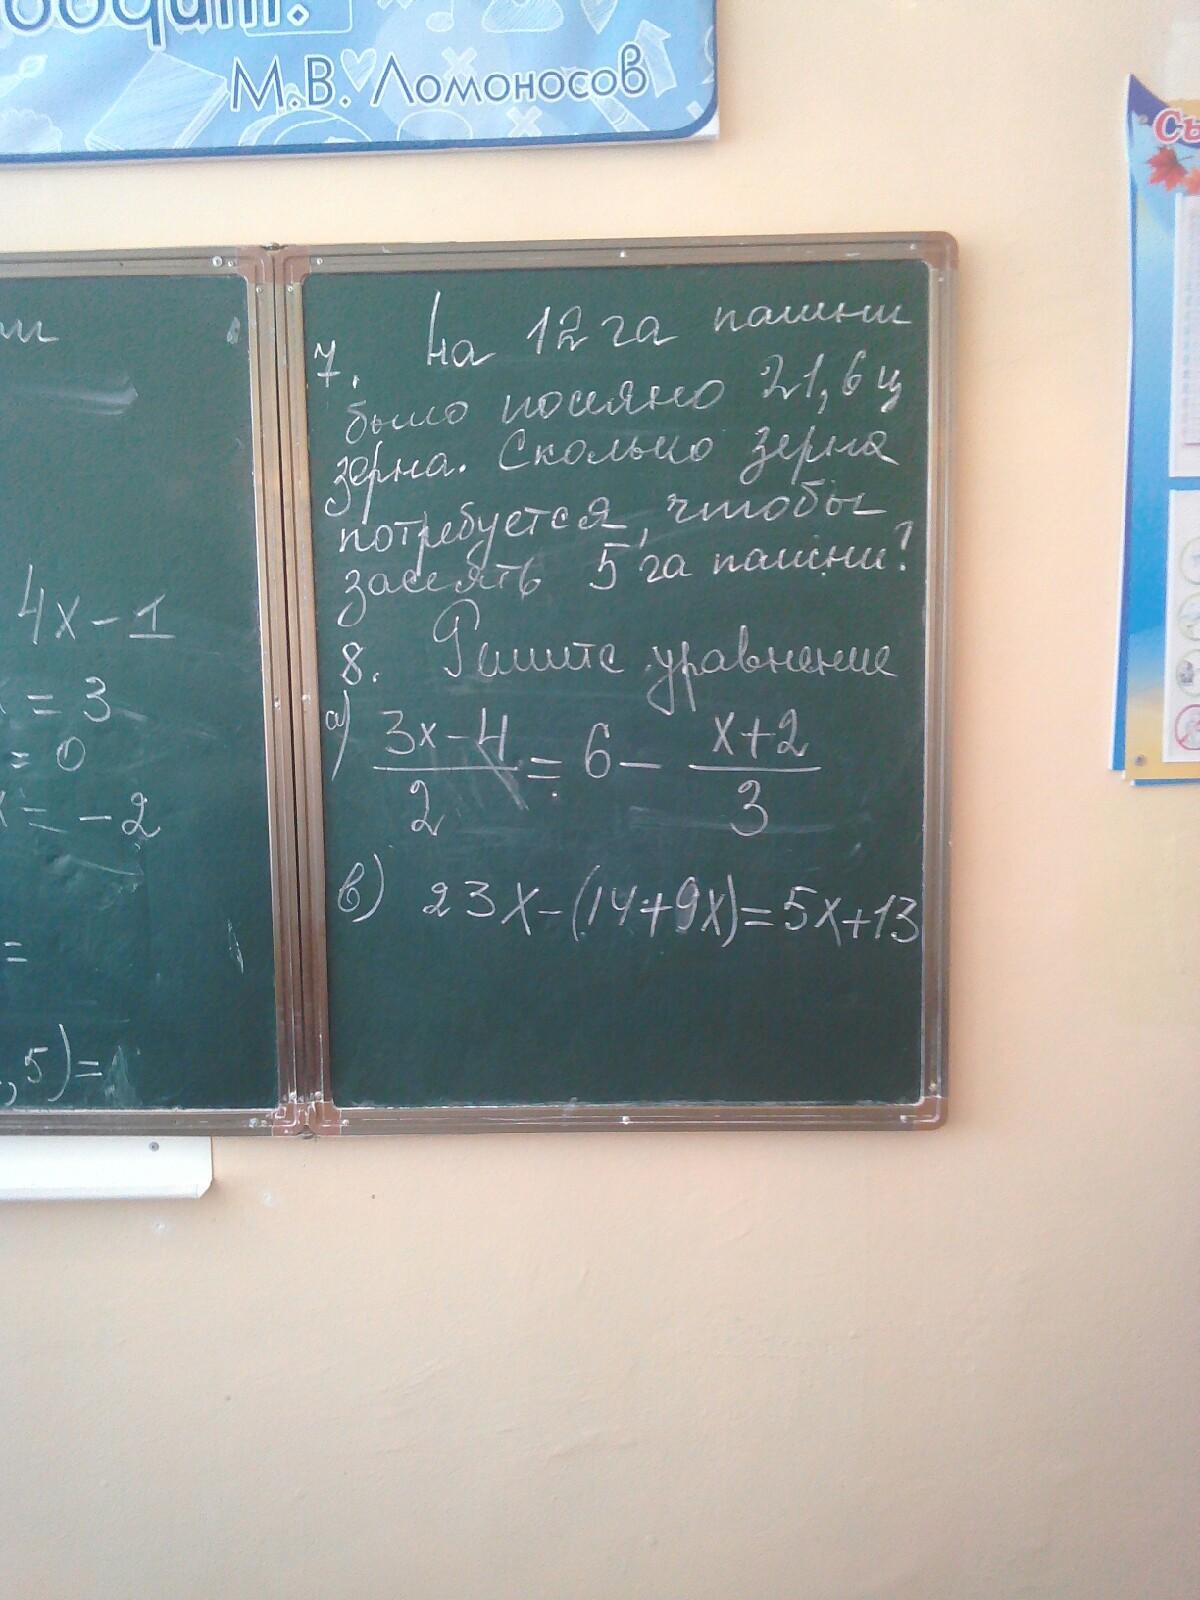 М.В. Ломоносов
4x-1
= 3
= 0
= -2
=
,5)=
7. На 12 га пашни
было посеяно 21,6 ц
зерна. Сколько зерна
потребуется, чтобы
засеять 5 га пашни?
8. Решите уравнение
а) (3x-4)/2 = 6 - (x+2)/3
в) 23x-(14+9x)=5x+13